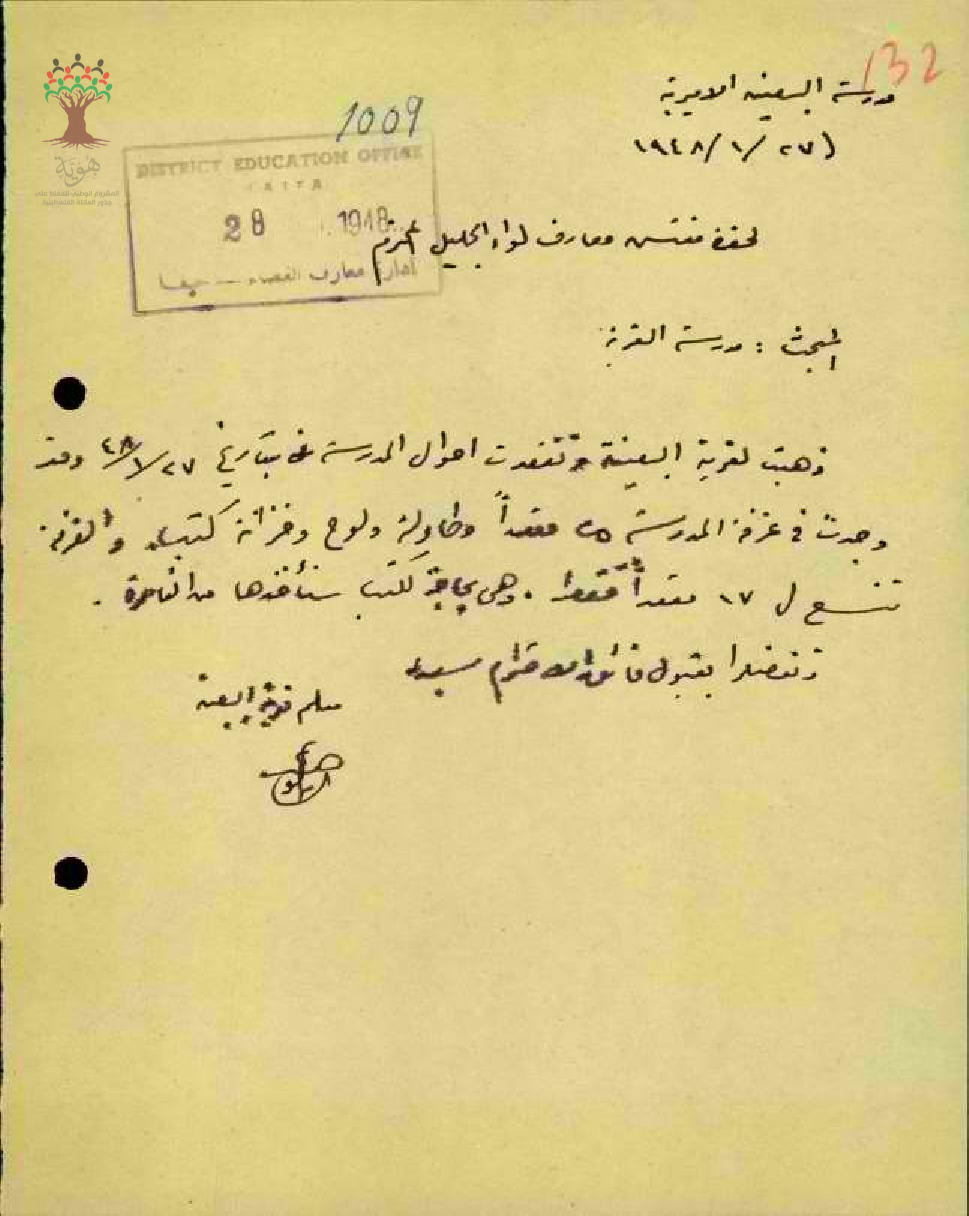 132
مدرسة البعينة الاميرية
١٩٤٨/١/٢٧
1009
DISTRICT EDUCATION OFFICE
HAIFA
28 1948
ادارة معارف القضاء — حيفا
هوية
لحضرة مفتش معارف لواء الجليل المحترم
المبحث : مدرسة القرية
ذهبت لقرية البعينة وتفقدت احوال المدرسة بتاريخ ٢٧/١/٤٨ وقد
وجدت في غرفة المدرسة ٢٥ مقعداً وطاولة ولوح وخزانة كتب. والغرفة
تتسع ل ١٧ مقعداً فقط. وهي بحاجة لكتب سنأخذها من الناصرة .
وتفضلوا بقبول فائق الاحترام سيدي
معلم قرية البعينة